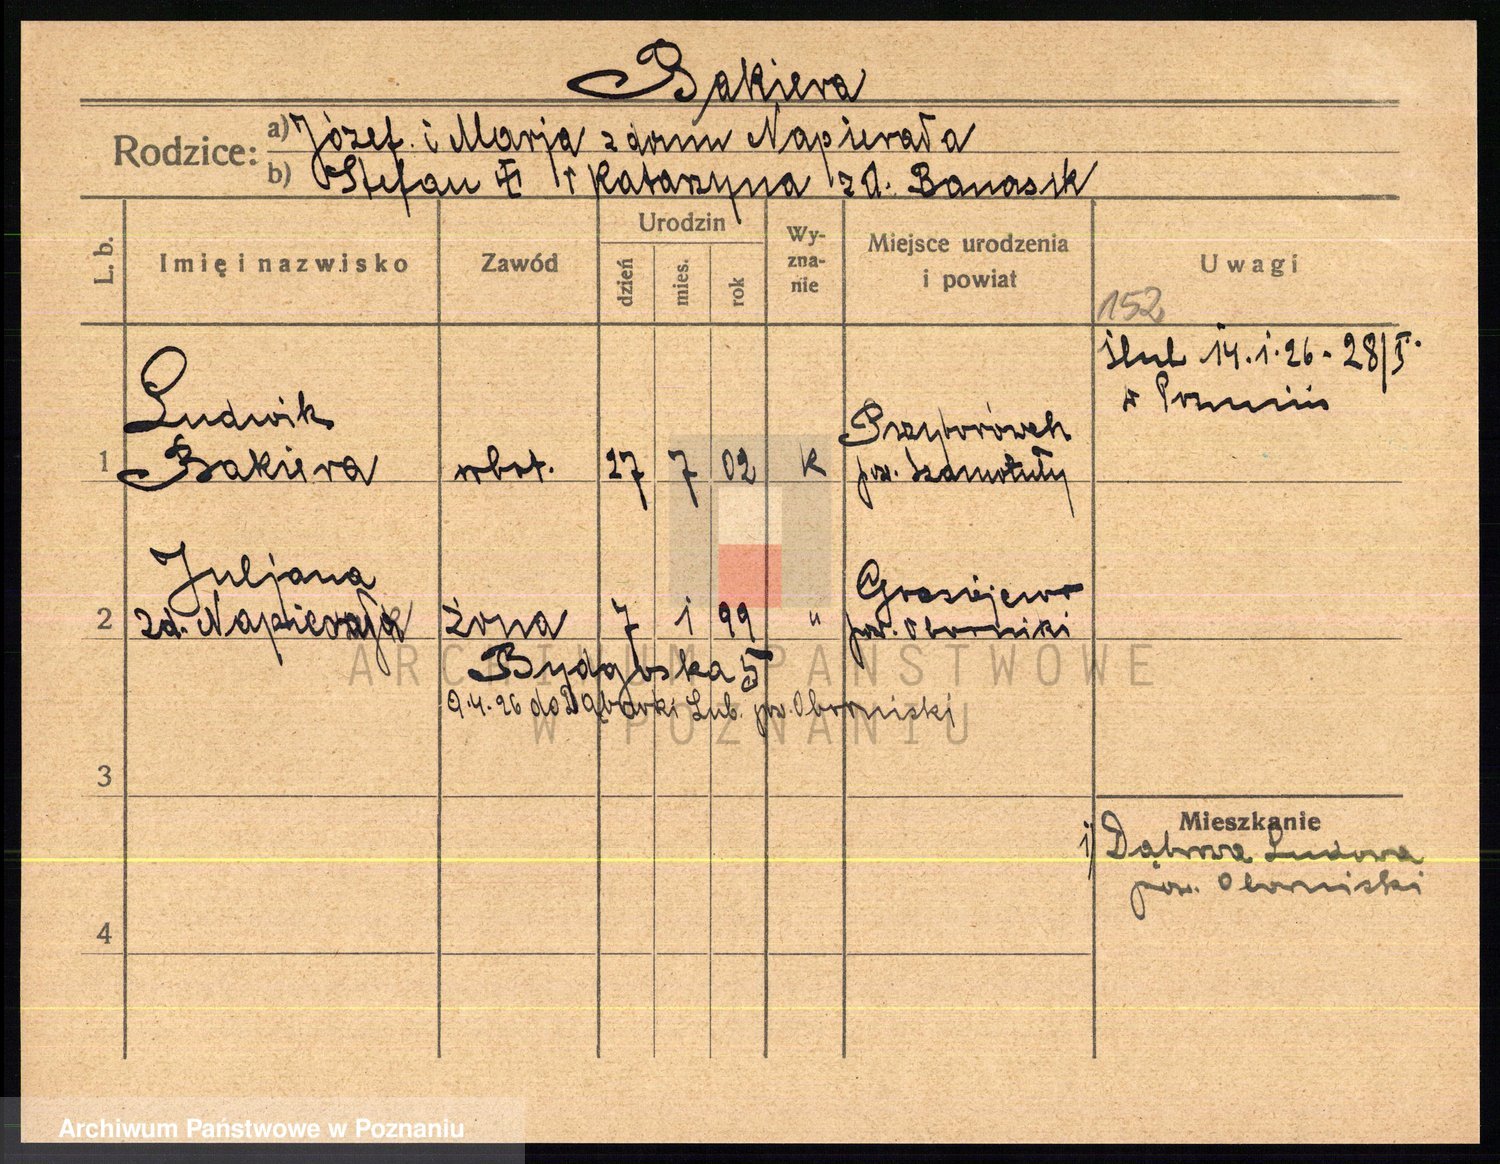 Bakiera
Rodzice:
a) Józef i Marja z domu Napierała
b) Stefan i Katarzyna z d. Banasik
L. b.
Imię i nazwisko
Zawód
Urodzin
dzień
mies.
rok
Wy-
zna-
nie
Miejsce urodzenia
i powiat
Uwagi
152
ślub 14.1.26 - 28/I.
w Poznaniu
Ludwik
Bakiera
1
robot.
27 7 02
k
Przyborówek
pow. Szamotuły
Juljana
zd. Napierała
2
żona
7 1 99
"
Gorsiejewo
pow. Oborniki
Bydgoska 5
9.4.26 do Dąbrówki Lud. pow. Oborniski
3
4
Mieszkanie
1) Dąbrowa Ludowa
pow. Oborniski
ARCHIWUM PAŃSTWOWE
W POZNANIU
Archiwum Państwowe w Poznaniu